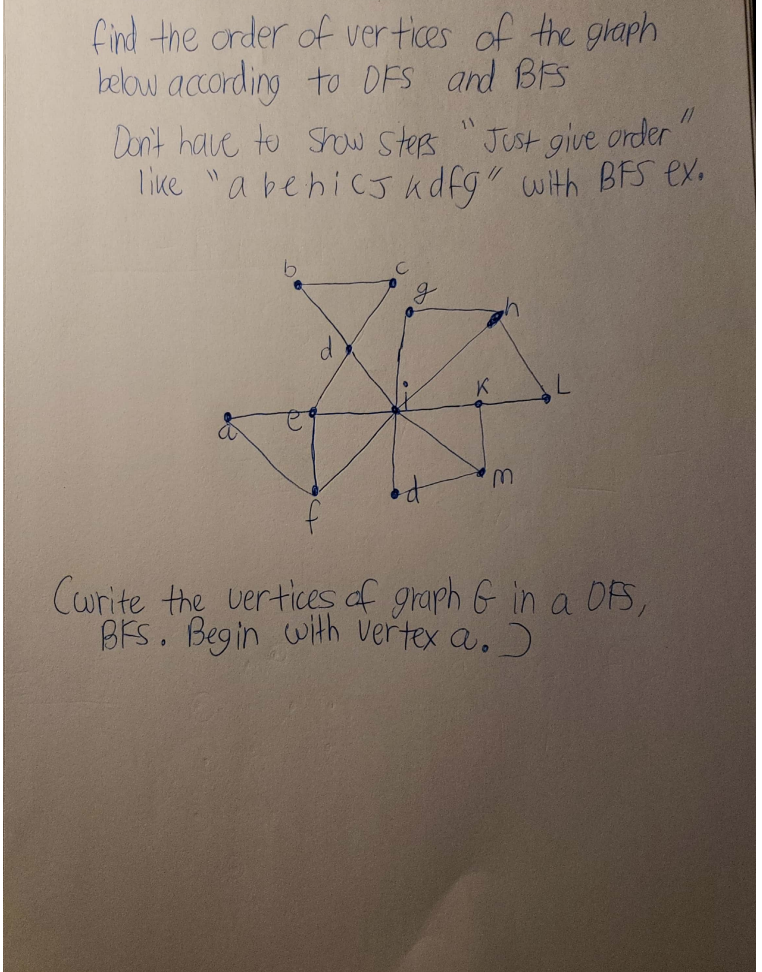 find the order of vertices of the graph
below according to DFS and BFS
Don't have to show steps "Just give order"
like "a b e h i c J k d f g" with BFS ex.
b
c
g
h
d
i
K
L
a
e
d
m
f
(write the vertices of graph G in a DFS,
BFS. Begin with vertex a.)